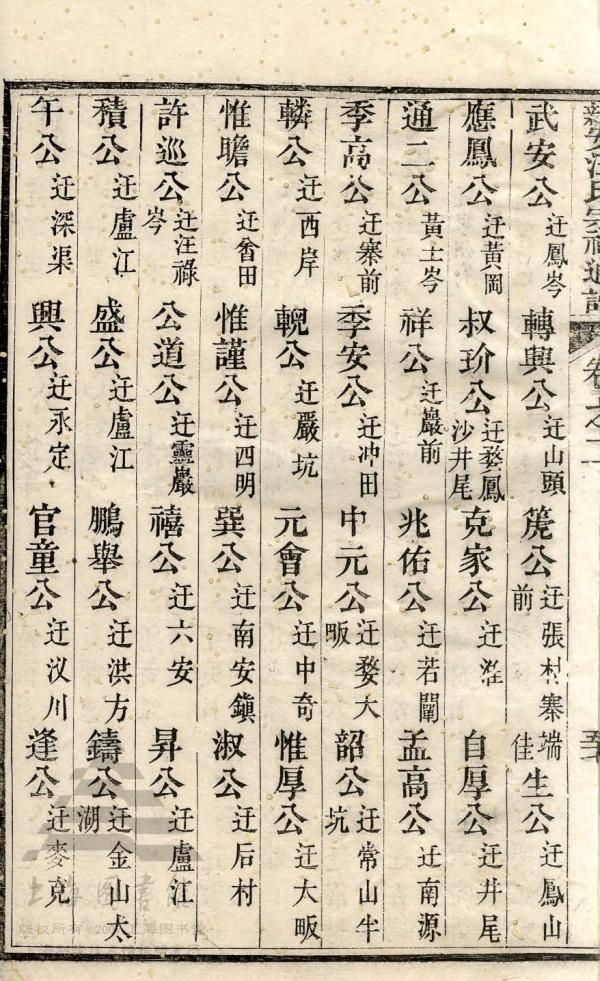 新安汪氏宗祠通譜 卷之二
武安公 迁鳳岑 轉興公 迁山頭 篪公 迁張村寨前 端佳生公 迁鳳山
應鳳公 迁黃岡 叔玠公 迁婺鳳沙井尾 克家公 迁淮 自厚公 迁井尾
通二公 黃土岑 祥公 迁巖前 兆佑公 迁若闡 孟高公 迁南源
季高公 迁寨前 季安公 迁冲田 中元公 迁婺大畈 韶公 迁常山半坑
轔公 迁西岸 輗公 迁嚴坑 元會公 迁中奇 惟厚公 迁大畈
惟瞻公 迁曾田 惟謹公 迁四明 巽公 迁南安鎮 淑公 迁后村
許巡公 迁汪祿岑 公道公 迁靈巖 禧公 迁六安 昇公 迁盧江
積公 迁盧江 盛公 迁盧江 鵬舉公 迁洪方 鑄公 迁金山太湖
午公 迁深渠 興公 迁永定 官童公 迁汊川 逢公 迁麥克
上海图書館
版权所有 上海图书馆